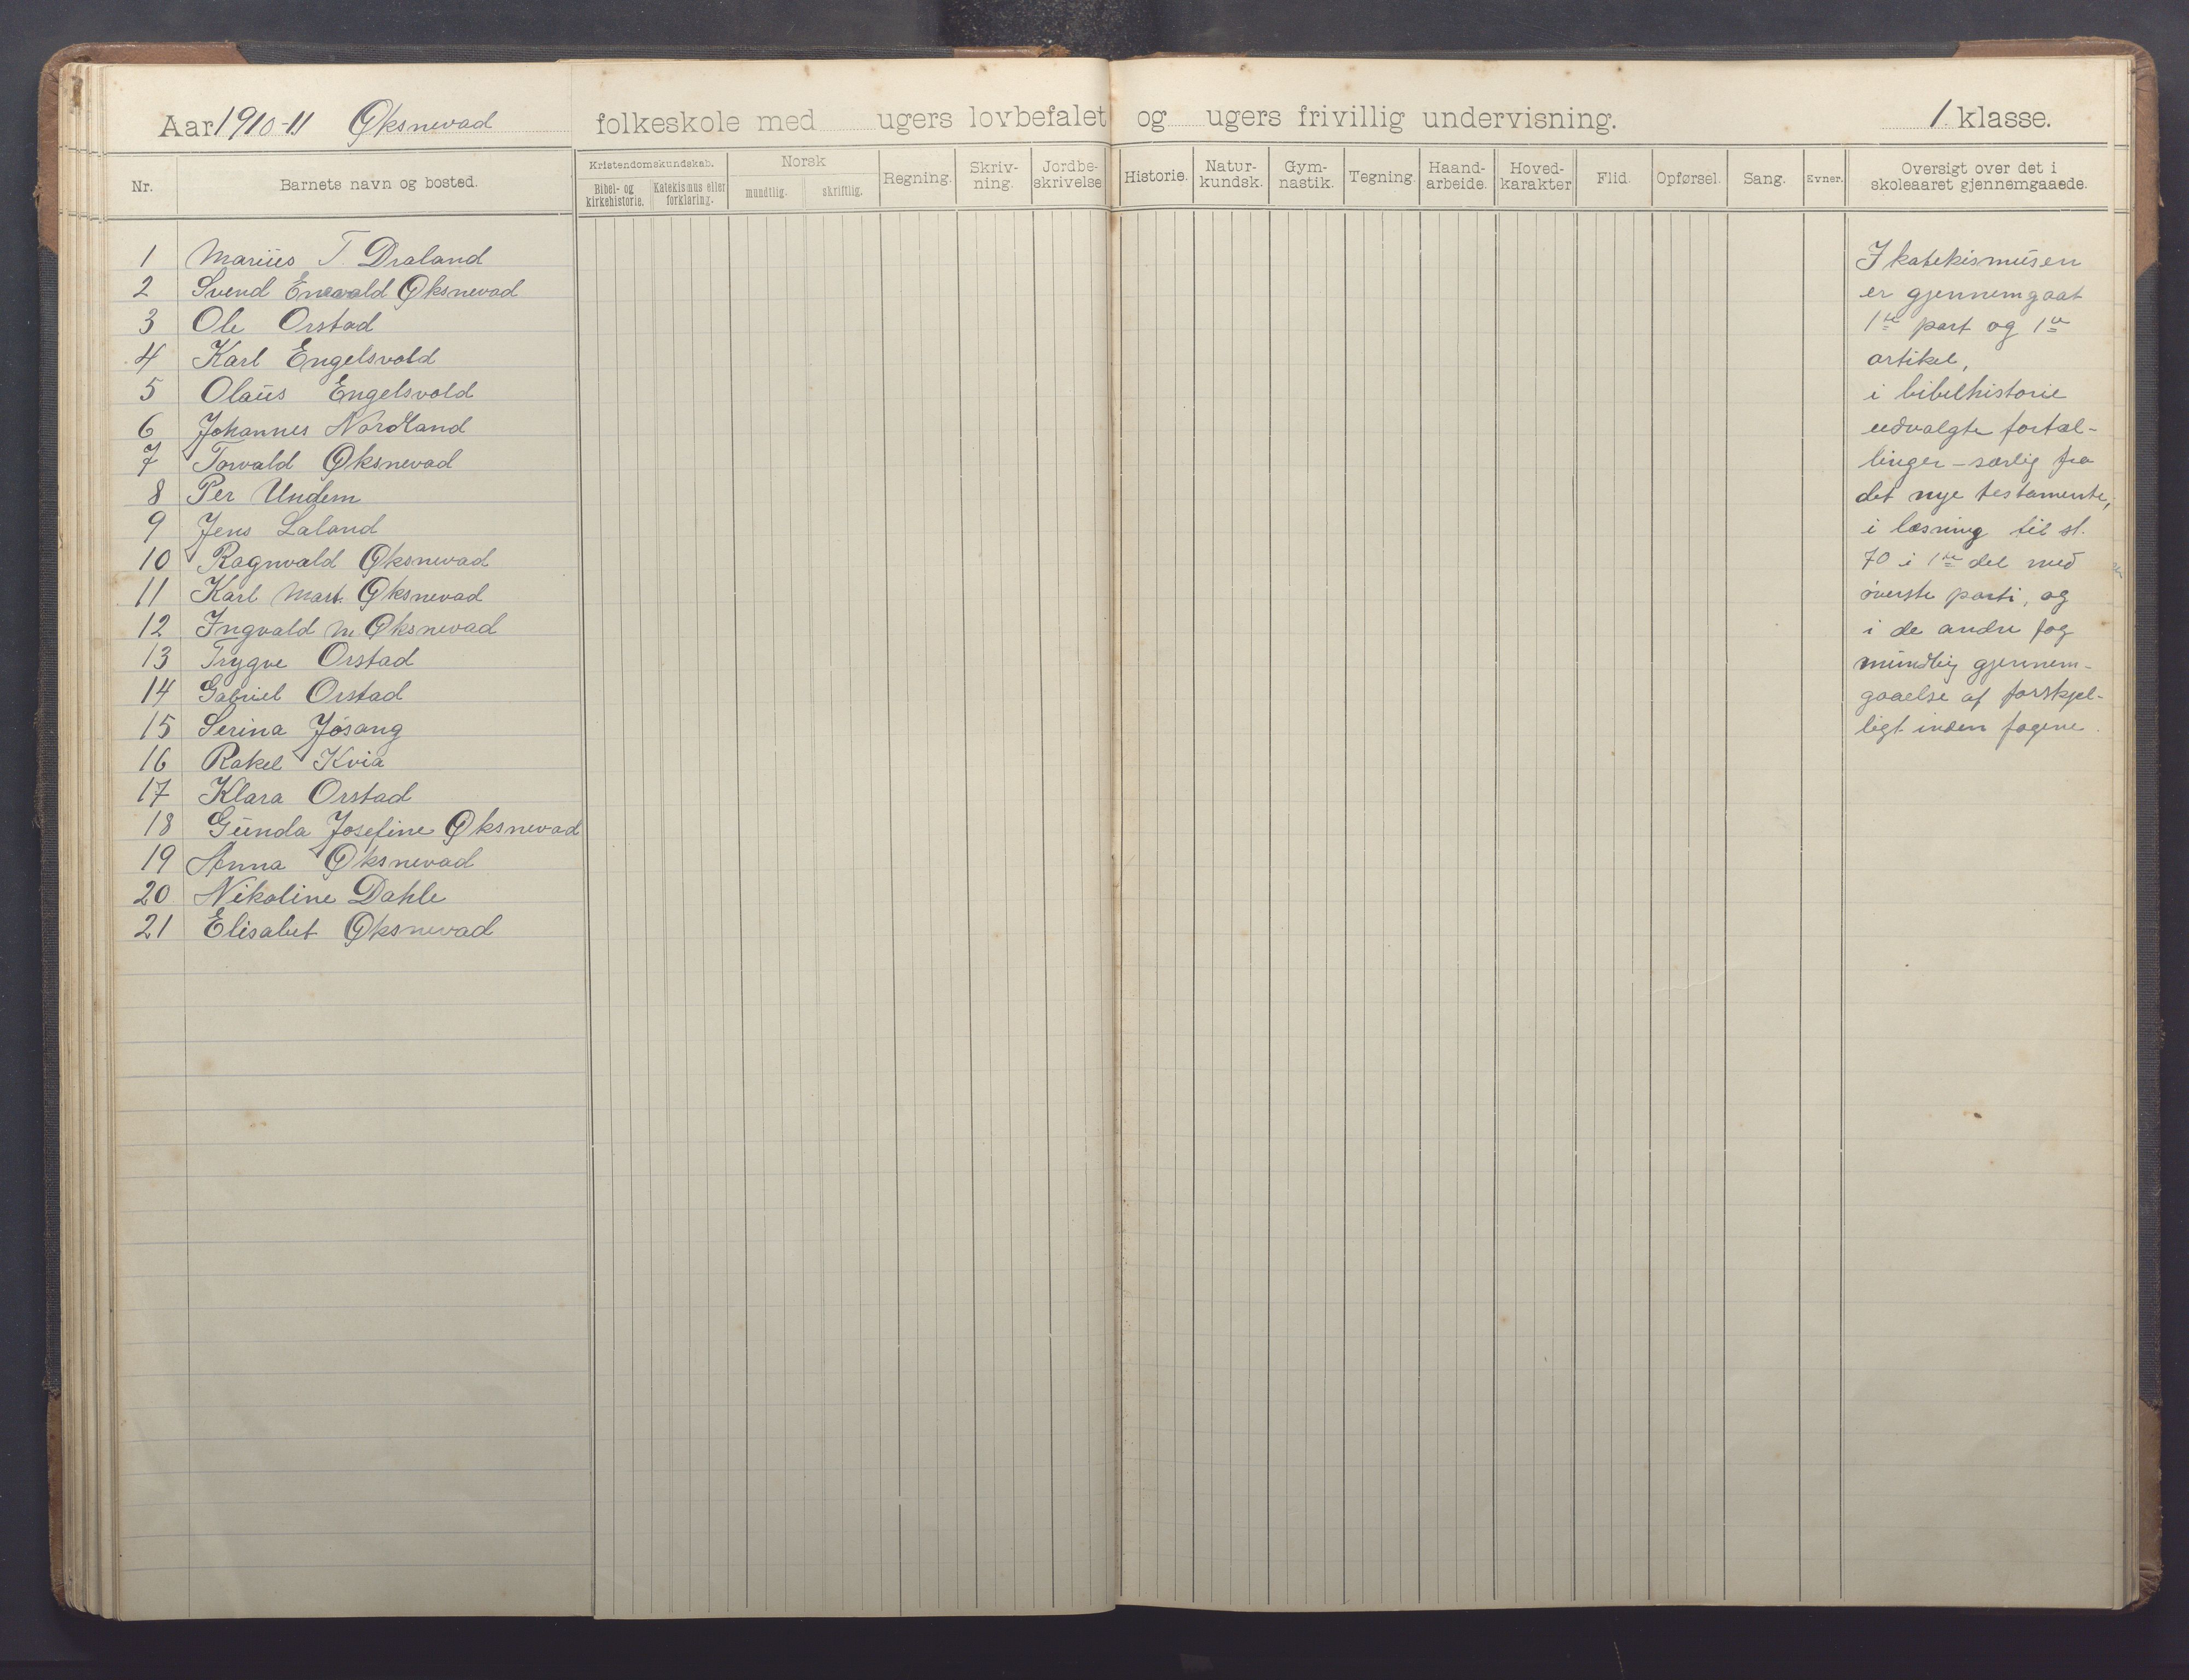 Aar 1910-11 Øksnevad folkeskole med ugers lovbefalet og ugers frivillig undervisning. 1 klasse.
Nr. Barnets navn og bosted. Kristendomskundskab. Bibel- og kirkehistorie. Katekismus eller forklaring. Norsk mundtlig. skriftlig. Regning. Skriv-ning. Jordbe-skrivelse Historie. Natur-kundsk. Gym-nastik. Tegning. Haand-arbeide. Hoved-karakter Flid. Opførsel. Sang. Evner. Oversigt over det i skoleaaret gjennemgaaede.
1 Marius T. Draland
2 Svend Enevald Øksnevad
3 Ole Orstad
4 Karl Engelsvold
5 Olaus Engelsvold
6 Johannes Nordland
7 Torvald Øksnevad
8 Per Undem
9 Jens Laland
10 Ragnvald Øksnevad
11 Karl Mart. Øksnevad
12 Ingvald M. Øksnevad
13 Trygve Orstad
14 Gabriel Orstad
15 Serina Jøsang
16 Rakel Kvia
17 Klara Orstad
18 Gunda Josefine Øksnevad
19 Anna Øksnevad
20 Nikoline Dahle
21 Elisabet Øksnevad
I katekismusen
er gjennemgaat
1ste part og 1ste
artikel,
i bibelhistorie
udvalgte fortæl-
linger – særlig fra
det nye testamente,
i læsning til st.
70 i 1ste del med
øverste parti, og
i de andre fag
mundtlig gjennem-
gaaelse af forskjel-
ligt inden fagene.